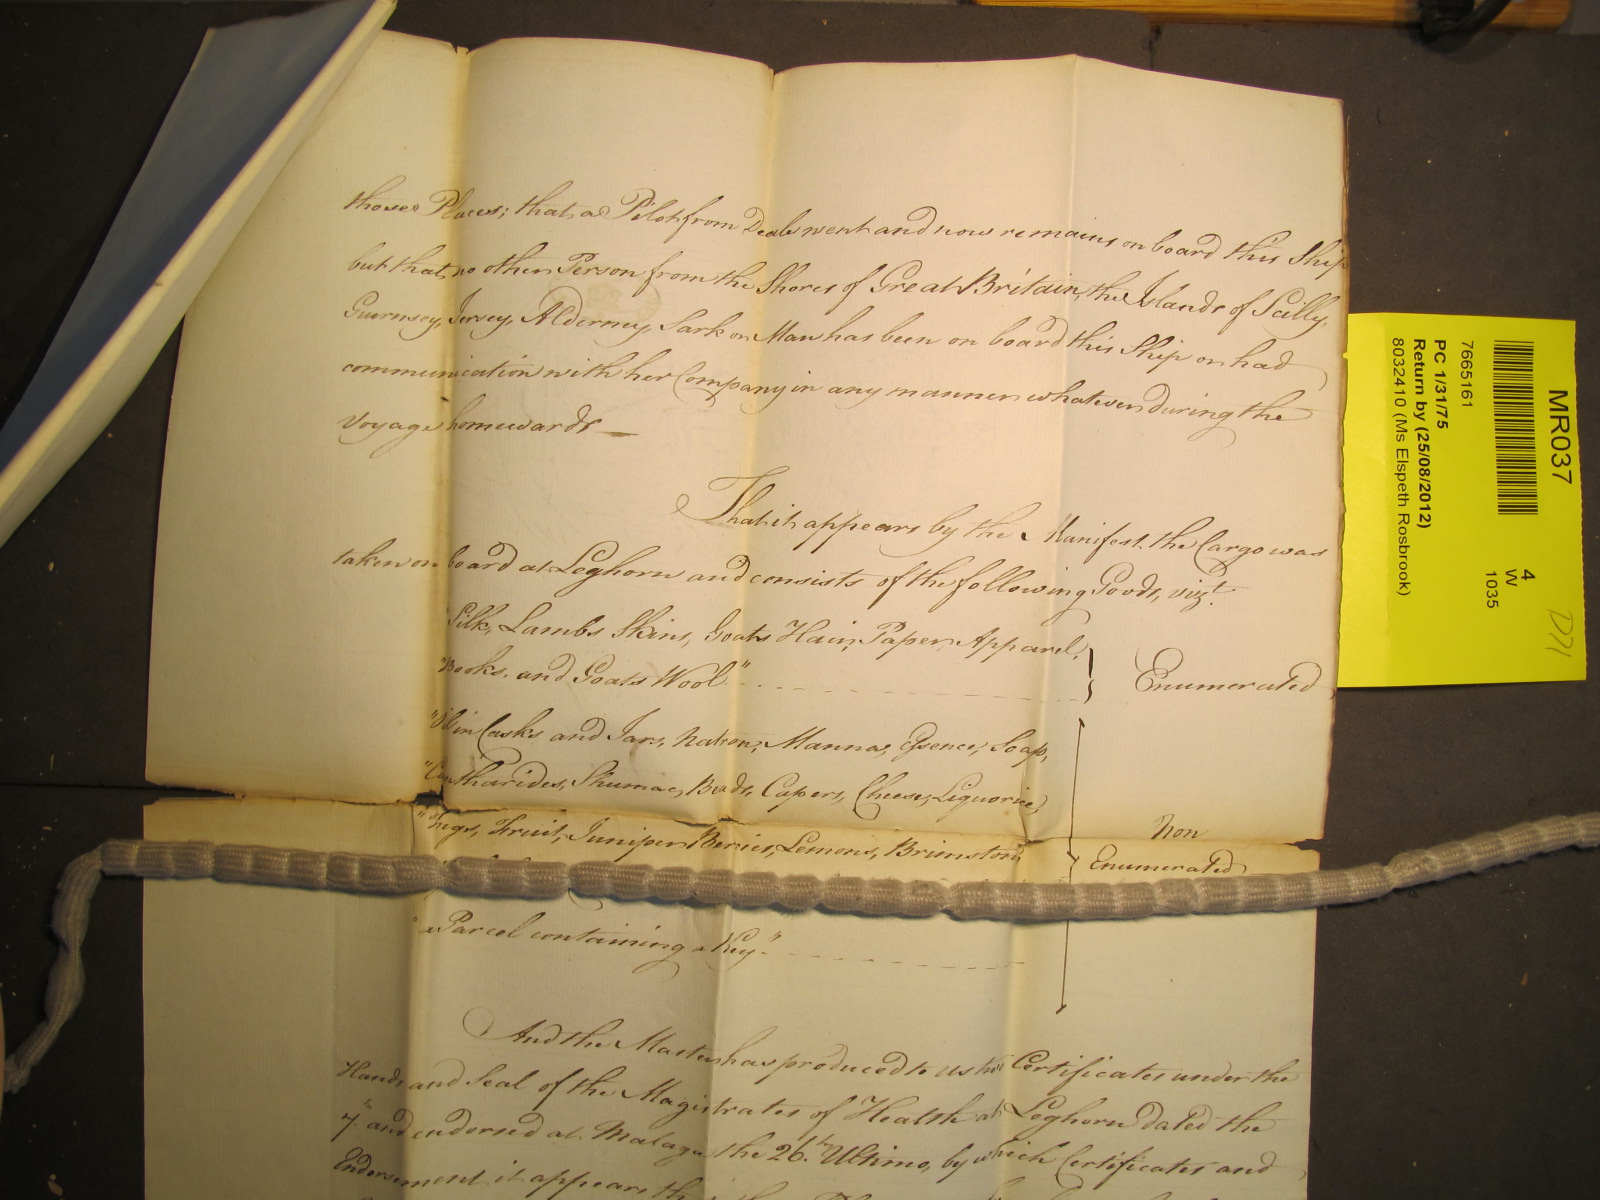 those Places; that a Pilot from Deale went and now remains on board this Ship
but that no other Person from the Shores of Great Britain, the Islands of Scilly,
Guernsey, Jersey, Alderney, Sark or Man has been on board this Ship or had
communication with her Company in any manner whatever during the
Voyage homewards —
That it appears by the Manifest the Cargo was
taken on board at Leghorn and consists of the following Goods, vizt.
"Silk, Lambs Skins, Goats Hair, Paper, Apparel,
"Books, and Goats Wool"
Enumerated
"Oil in Casks and Jars, Natron, Manna, Essence, Soap,
"Cantharides, Shumac, Beads, Capers, Cheese, Liquorice,
Fruit, Juniper Berries, Lemons, Brimstone
Non
Enumerated
"a Parcel containing a Key"
And the Master has produced to us the Certificates under the
Hands and Seal of the Magistrates of Health at Leghorn dated the
7th and endorsed at Malaga the 26th Ultimo, by which Certificates and
Endorsement it appears
MR037
4
W
1035
7665161
PC 1/31/75
Return by (25/08/2012)
8032410 (Ms Elspeth Rosbrook)
D71